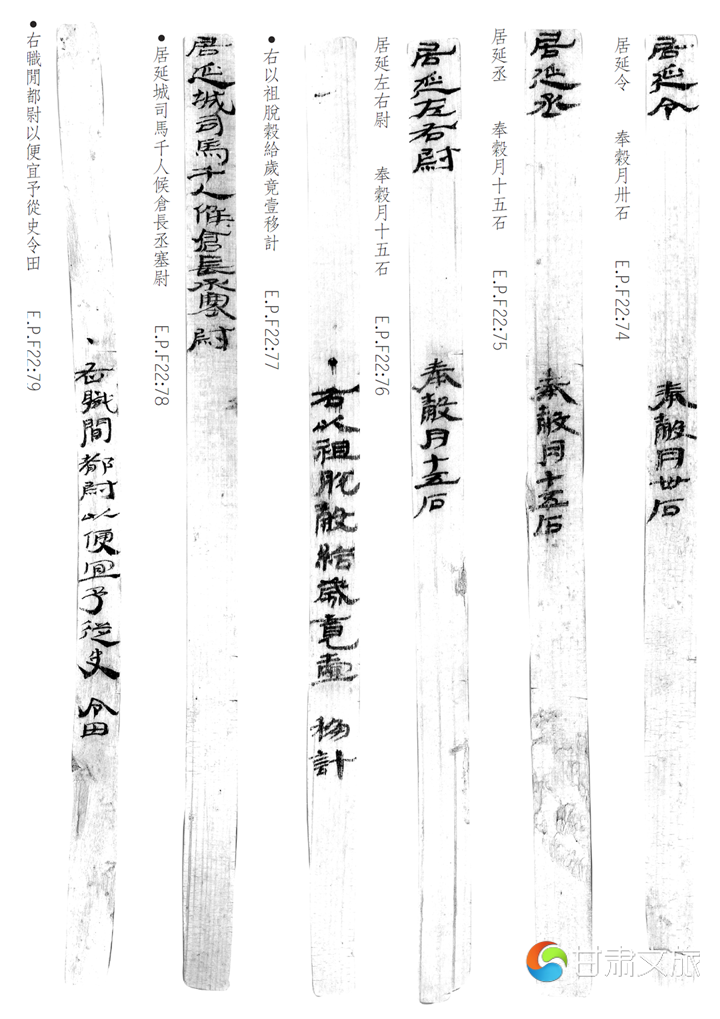 居延令　奉穀月卅石
居延令　奉穀月卅石　E.P.F22:74
居延丞　奉穀月十五石
居延丞　奉穀月十五石　E.P.F22:75
居延左右尉　奉穀月十五石
居延左右尉　奉穀月十五石　E.P.F22:76
•右以祖脫穀給歲竟壹移計
•右以祖脫穀給歲竟壹移計　E.P.F22:77
居延城司馬千人候倉長丞塞尉
•居延城司馬千人候倉長丞塞尉　E.P.F22:78
•右職間都尉以便宜予從史令田
•右職閒都尉以便宜予從史令田　E.P.F22:79
甘肃文旅